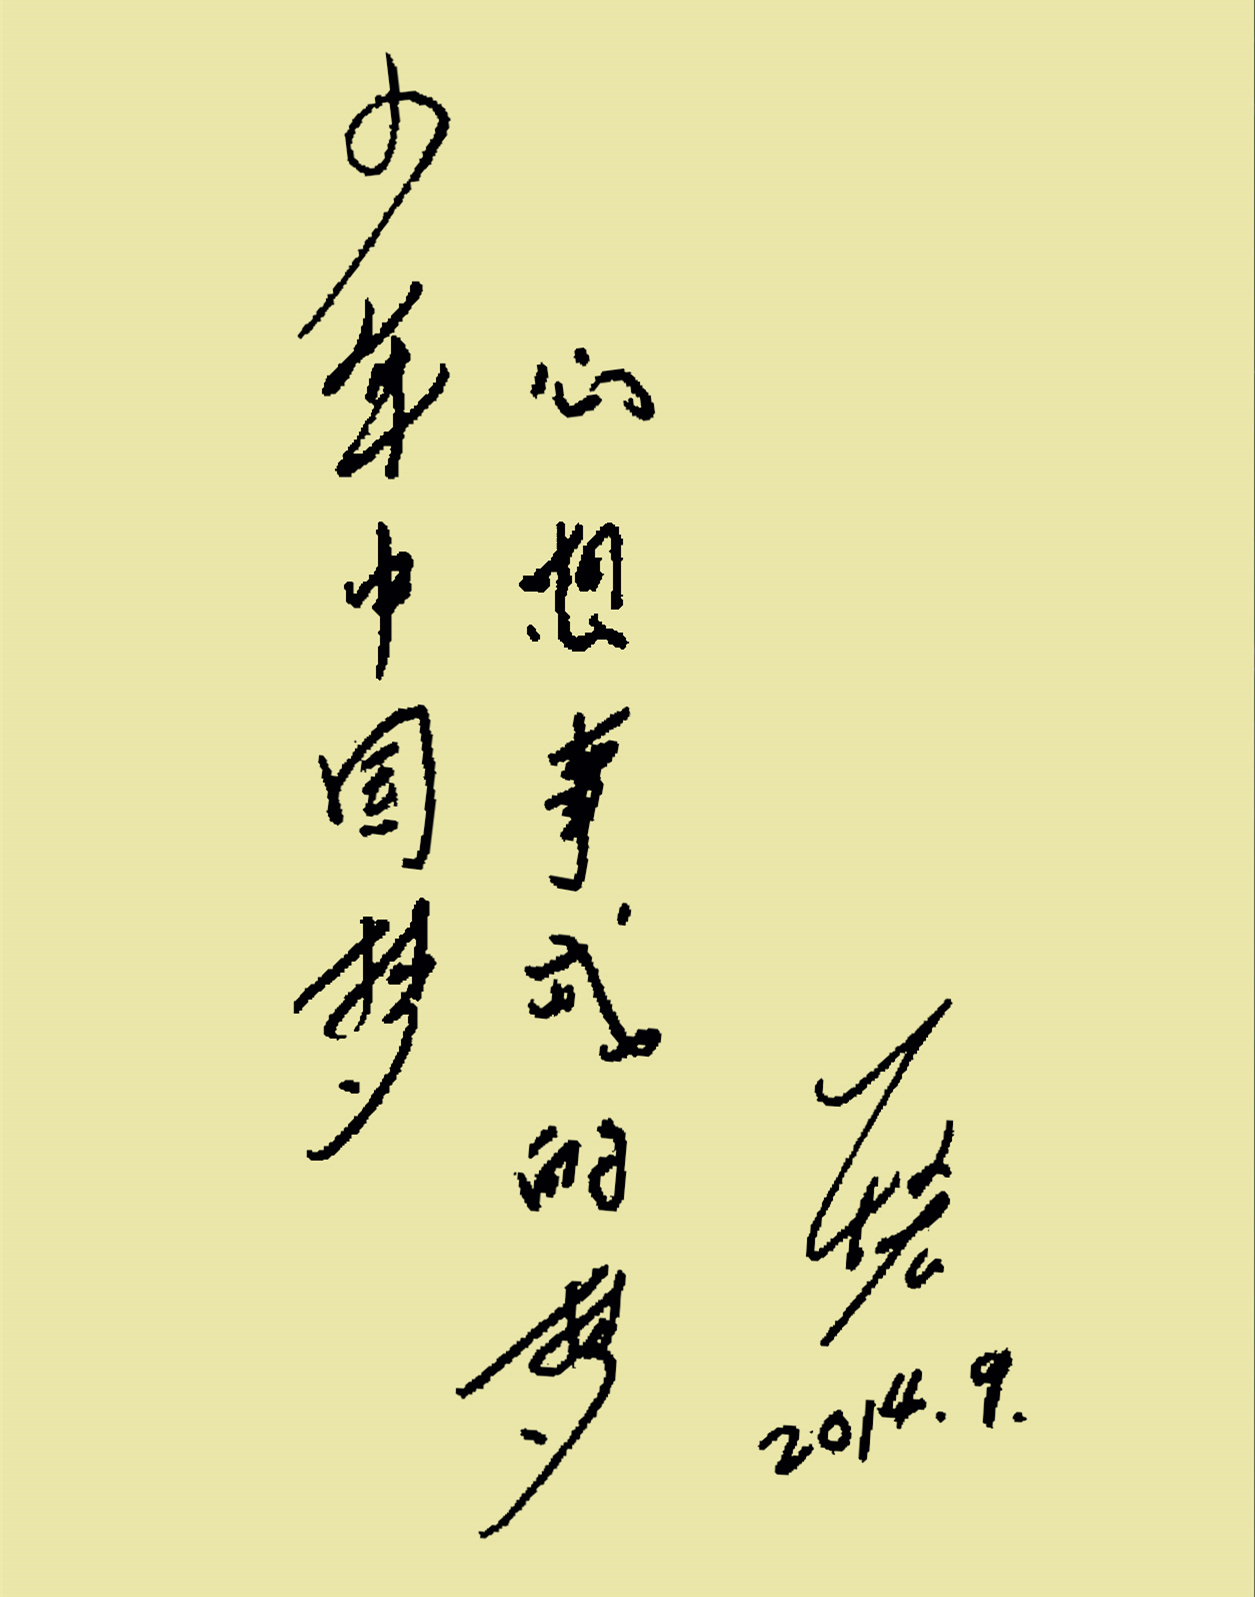 少年中国梦
心想事成的梦
2014.9.